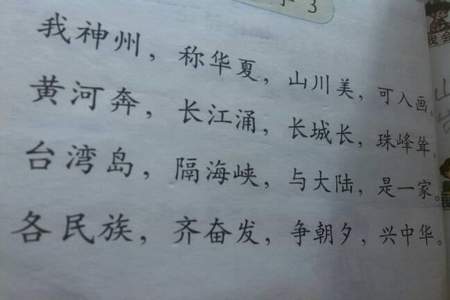 3
我神州，称华夏，山川美，可入画。
黄河奔，长江涌，长城长，珠峰耸。
台湾岛，隔海峡，与大陆，是一家。
各民族，齐奋发，争朝夕，兴中华。